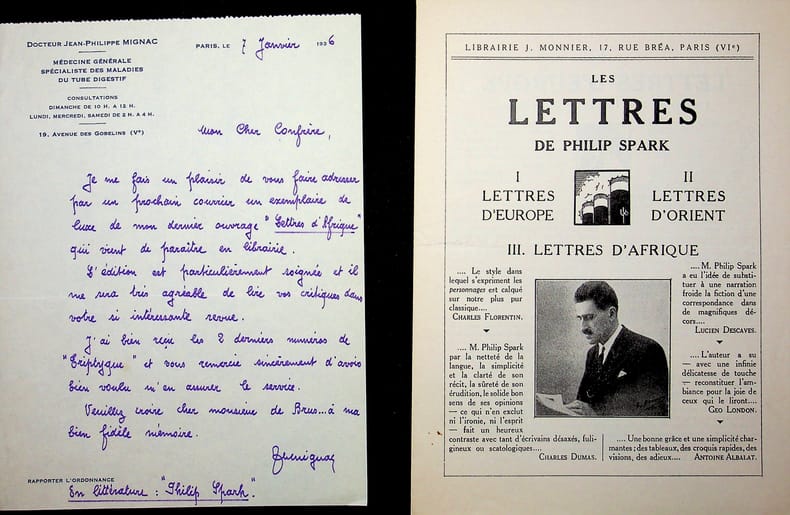 DOCTEUR JEAN-PHILIPPE MIGNAC
MÉDECINE GÉNÉRALE
SPÉCIALISTE DES MALADIES
DU TUBE DIGESTIF
CONSULTATIONS
DIMANCHE DE 10 H. A 12 H.
LUNDI, MERCREDI, SAMEDI DE 2 H. A 4 H.
19, AVENUE DES GOBELINS (Vᵉ)
PARIS, LE 7 Janvier 1936
Mon Cher Confrère,
Je me fais un plaisir de vous faire adresser
par un prochain courrier un exemplaire de
luxe de mon dernier ouvrage "Lettres d'Afrique"
qui vient de paraître en librairie.
L'édition est particulièrement soignée et il
me sera très agréable de lire vos critiques dans
votre si intéressante revue.
J'ai bien reçu les 2 derniers numéros de
"Triptyque" et vous remercie sincèrement d'avoir
bien voulu m'en assurer le service.
Veuillez croire cher monsieur de Brus... à ma
bien fidèle mémoire.
RAPPORTER L'ORDONNANCE
En littérature : "Philip Spark".
LIBRAIRIE J. MONNIER, 17, RUE BRÉA, PARIS (VIᵉ)
LES
LETTRES
DE PHILIP SPARK
I
LETTRES
D'EUROPE
II
LETTRES
D'ORIENT
III. LETTRES D'AFRIQUE
.... Le style dans
lequel s'expriment les
personnages est calqué
sur notre plus pur
classique....
CHARLES FLORENTIN.
.... M. Philip Spark
par la netteté de la
langue, la simplicité
et la clarté de son
récit, la sûreté de son
érudition, le solide bon
sens de ses opinions
— ce qui n'en exclut
ni l'ironie, ni l'esprit
— fait un heureux
contraste avec tant d'écrivains désaxés, fuli-
gineux ou scatologiques....
CHARLES DUMAS.
.... M. Philip Spark
a eu l'idée de substi-
tuer à une narration
froide la fiction d'une
correspondance dans
de magnifiques dé-
cors....
LUCIEN DESCAVES.
.... L'auteur a su
— avec une infinie
délicatesse de touche
— reconstituer l'am-
biance pour la joie de
ceux qui le liront....
GEO LONDON.
.... Une bonne grâce et une simplicité char-
mantes ; des tableaux, des croquis rapides, des
visions, des adieux....
ANTOINE ALBALAT.